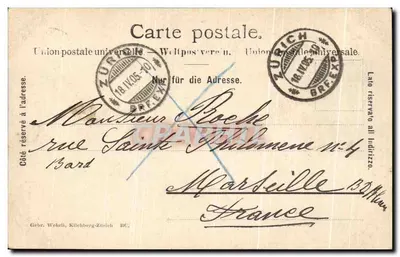 Carte postale.
Union postale universelle — Weltpostverein. Unione postale universale.
ZÜRICH
18 IV 05-10
BRF. EXP.
ZÜRICH
18 IV 05-10
BRF. EXP.
Nur für die Adresse.
Côté réservé à l'adresse.
Lato riservato all indirizzo.
Monsieur Roche
rue Sainte Philomène no 4
Marseille
France
Gebr. Wehrli, Kilchberg-Zürich